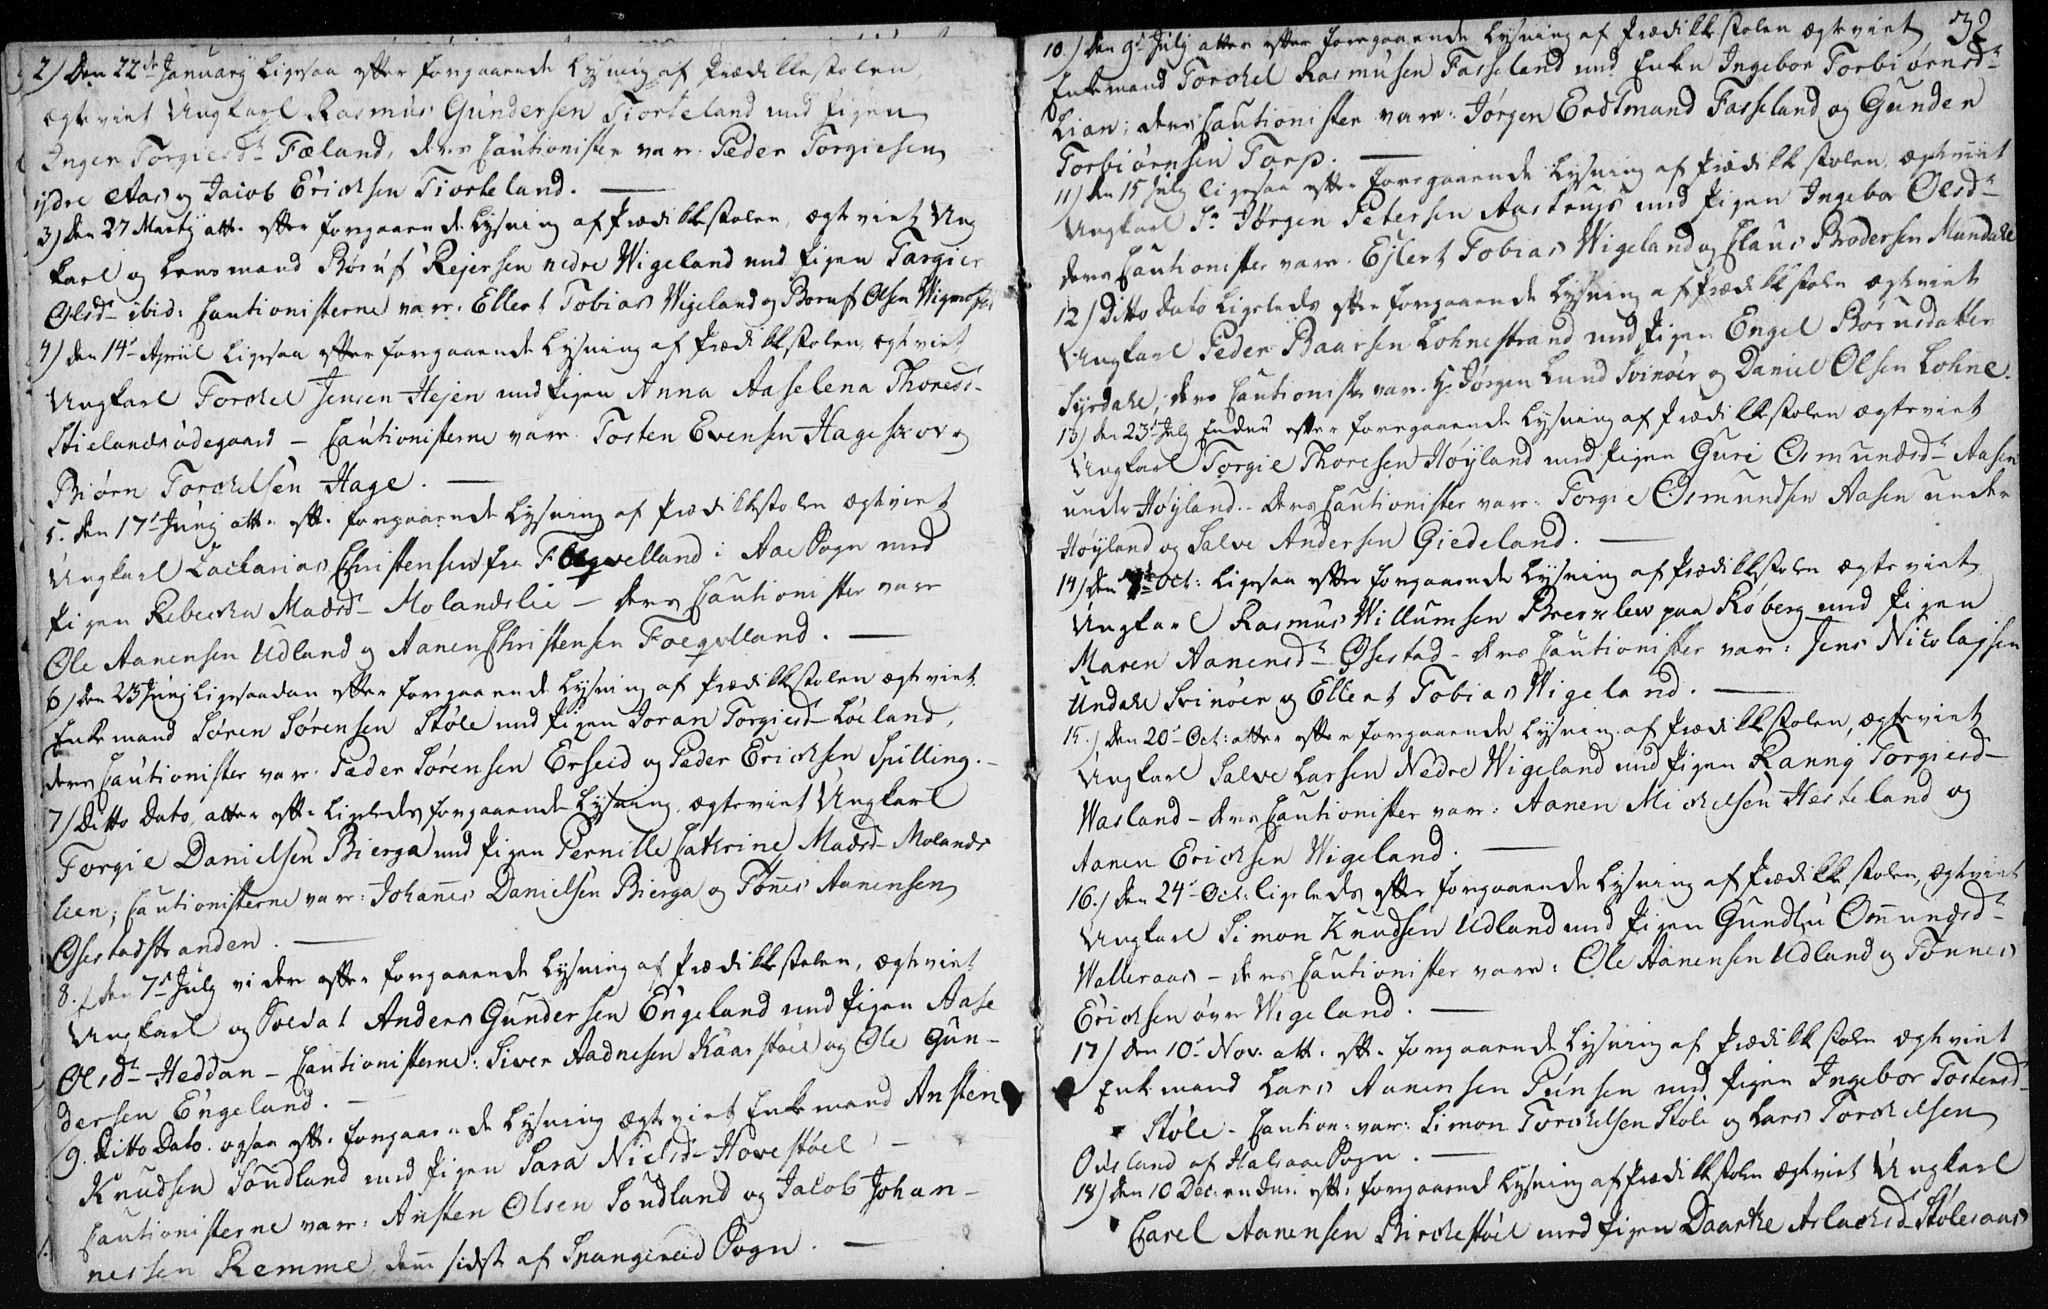 2) Den 22de January Ligesaa efter forgaaende Lysning af Prædikkestolen
ægteviet Ungkarl Rasmus Gundersen Tiorteland med Pigen
Inger Torgiesdr Fæland, deres Cautionister var Peder Torgiesen
ydre Aas og Jacob Ericksen Tiorteland. —
3) den 27 Martij att. efter forgaaende Lysning af Prædikkestolen, ægteviet Ung
karl og Lensmand Børuf Rejersen nedre Wigeland med Pigen Targier
Olsdr ibid: Cautionisterne var. Ellert Tobias Wigeland og Boruf Olsen
4) den 14de Apriil Ligesaa efter forgaaende Lysning af Prædikkestolen ægteviet
Ungkarl Torckel Jensen Hejen med Pigen Anna Aaselena Thoresd-
Stielandsødegaard – Cautionisterne var Tosten Evensen Hageskov og
Biørn Torckelsen Hage. —
5. den 17de Junij att. eft. forgaaende Lysning af Prædikkestolen ægteviet
Ungkarl Zackarias Christensen fra Foeqvelland i Aae Sogn med
Pigen Rebecka Madsd- Molandslie – deres Cautionister var
Ole Aanensen Udland og Aanen Christensen Foeqvelland. —
6) den 23 Junij Ligesaadan efter forgaaende Lysning af Prædikkestolen ægteviet
Enkemand Søren Sørensen Støle med Pigen Joran Torgiesd- Løeland,
deres Cautionister var. Peder Sørensen Erseid og Peder Ericksen Spilling. -
7) Ditto Dato atter eft. Ligeledes forgaaende Lysning ægteviet Ungkarl
Torgie Danielsen Bierga med Pigen Pernille Cathrine Madsd- Molands
lien; Cautionisterne var: Johannes Danielsen Bierga og Tønnes Aanensen
Osestadstranden. —
8.) den 7de July videre efter forgaaende Lysning af Prædikkestolen, ægteviet
Ungkarl og Soldat Anders Gundersen Engeland med Pigen Aase
Olsdr Heddan – Cautionisterne: Siver Aadnesen Kaarstøel og Ole Gun-
dersen Engeland. —
9. Ditto Dato. ogsaa eft. forgaaende Lysning ægteviet Enkemand Ansten
Knudsen Søndland med Pigen Sara Nielsd- Hovestøel –
Cautionisterne var: Ansten Olsen Søndland og Jacob Johan-
nessen Remme, den sidst af Spangereid Sogn. —
39
10.) den 9de July atter efter foregaaende Lysning af Prædikkestolen ægteviet
Enkemand Torckel Rasmusen Fasseland med Enken Ingebor Torbiørnsdr
Lian; deres Cautionister var: Jørgen Erdtmand Fasseland og Gunder
Torbiørnsen Torp. —
11) den 15 July ligesaa efter foregaaende Lysning af Prædikkestolen ægteviet
Ungkarl Sr Jørgen Petersen Aastrup med Pigen Ingebor Olsdr
deres Cautionister var. Ejlert Tobias Wigeland og Claus Brodersen Mandahl
12) Ditto Dato Ligeleds efter forgaaende Lysning af Prædikkestolen ægteviet
Ungkarl Peder Baarsen Lohnestrand med Pigen Engel Børusdatter
Syrdahl, deres Cautionister var. Hr Jørgen Lund Svinøer og Daniel Olsen Lohne.
13) den 23de July Endnu efter foregaaende Lysning af Prædikkestolen ægteviet
Ungkarl Torgie Thoresen Høyland med Pigen Guri Osmundsdr Aasen
under Høyland. - deres Cautionister var: Torgie Osmundsen Aasen under
Høyland og Salve Andersen Giedeland. —
14) den 7de Oct: Ligesaa efter forgaaende Lysning af Prædikkestolen ægteviet
Ungkarl Rasmus Willumsen paa Roberg med Pigen
Maren Aanensdr Osestad – deres Cautionister var: Jens Nicolajsen
Undahl Svinøer og Ellert Tobias Wigeland. —
15.) den 20de Oct: atter efter forgaaende Lysning af Prædikkestolen, ægteviet
Ungkarl Salve Larsen Nedre Wigeland med Pigen Ranny Torgiesd-
Wasland – deres Cautionister var: Aanen Mickelsen Hesteland og
Aanen Ericksen Wigeland. —
16.) den 24de Oct: ligeleds efter forgaaende Lysning af Prædikkestolen, ægteviet
Ungkarl Simon Knudsen Udland med Pigen Gundlu Omundsdr
Walleraas – deres Cautionister var: Ole Aanensen Udland og Tønnes
Ericksen øvre Wigeland. —
17) den 10de Nov. att. eft. forgaaende Lysning af Prædikkestolen ægteviet
Enkemand Lars Aanensen Ponsen med Pigen Ingebor Tostensd-
Støle – Caution: var: Simon Torckelsen Støle og Lars Torckelsen
Ousland af Halsaae Sogn. —
18) den 10 Dec: endnu. eft. forgaaende Lysning af Prædikkestolen ægteviet Ungkarl
Carel Aanensen Birckestøel med Pigen Daarthe Aslachsd. Støleraas